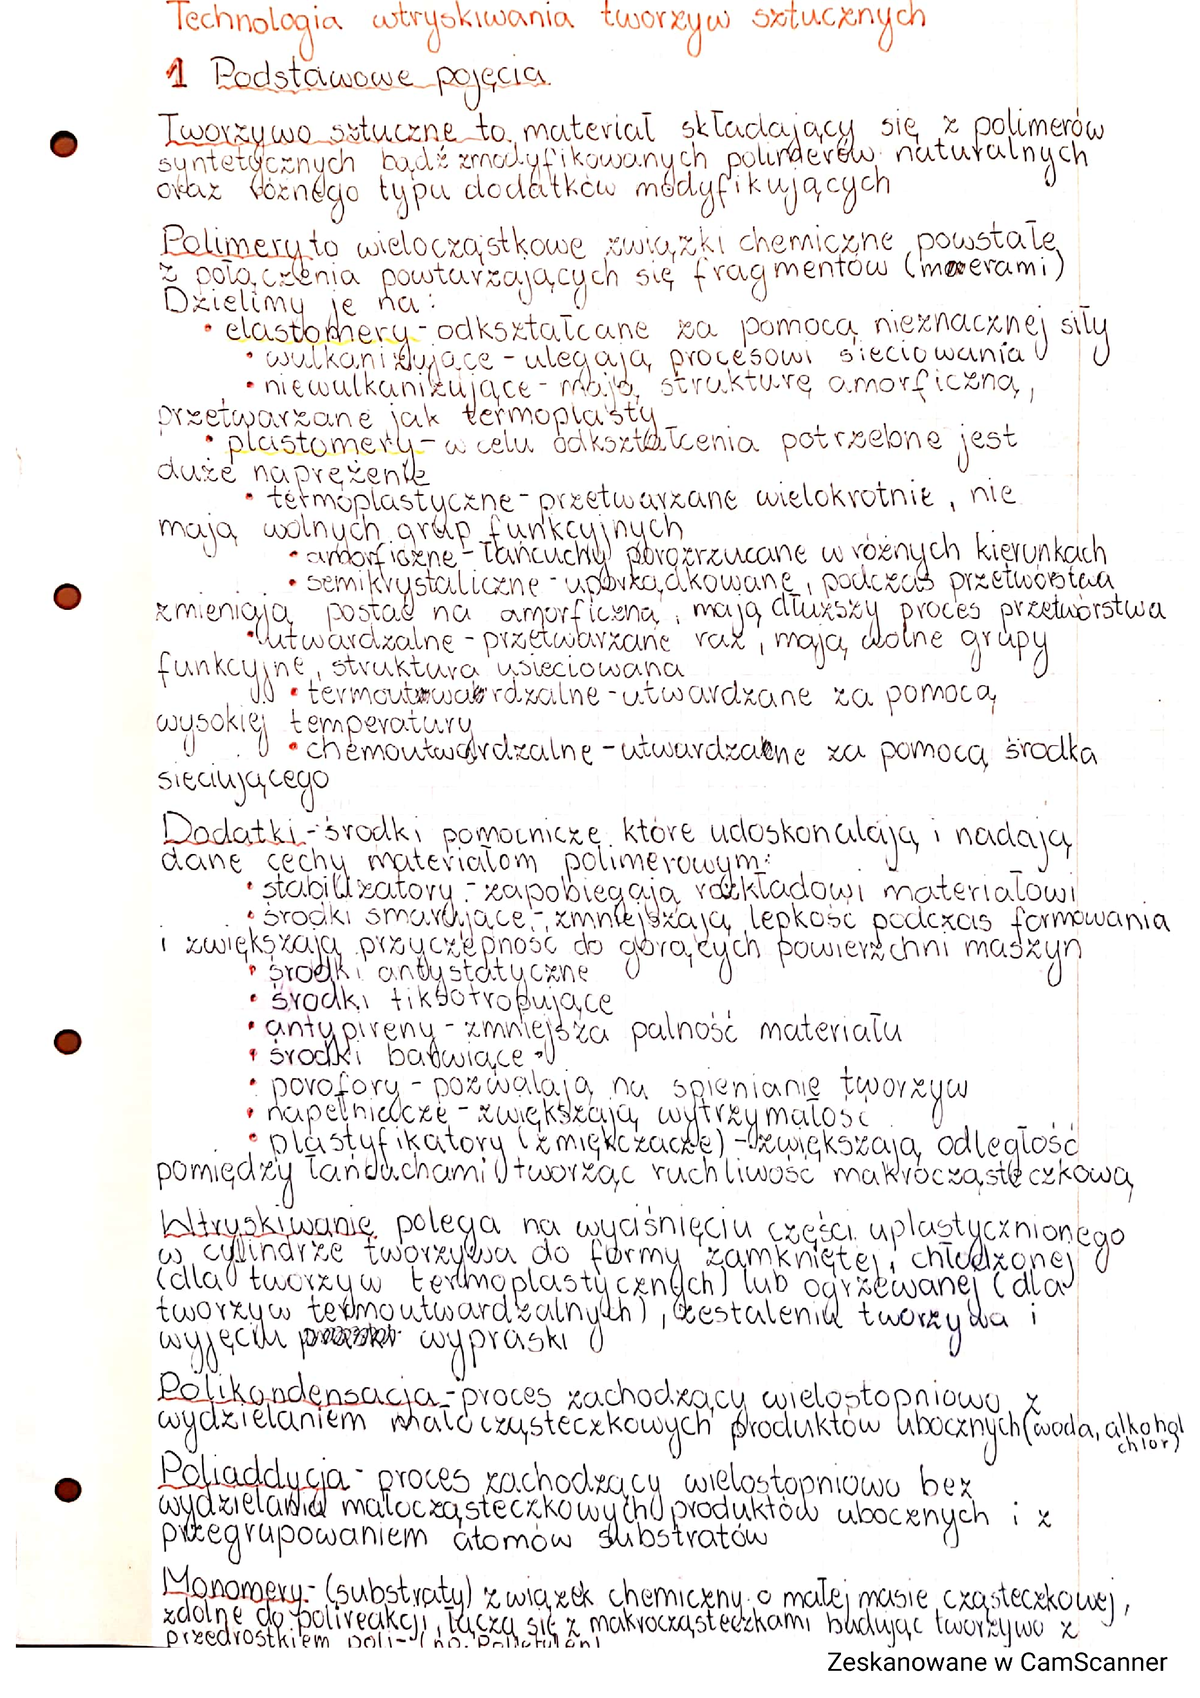 Technologia wtryskiwania tworzyw sztucznych
1 Podstawowe pojęcia
Tworzywo sztuczne to materiał składający się z polimerów
syntetycznych bądź zmodyfikowanych polimerów naturalnych
oraz różnego typu dodatków modyfikujących
Polimery to wielocząstkowe związki chemiczne powstałe
z połączenia powtarzających się fragmentów (merami)
Dzielimy je na:
• elastomery - odkształcane za pomocą nieznacznej siły
• wulkanizujące - ulegają procesowi sieciowania
• niewulkanizujące - mają strukturę amorficzną,
przetwarzane jak termoplasty
• plastomery - w celu odkształcenia potrzebne jest
duże naprężenie
• termoplastyczne - przetwarzane wielokrotnie, nie
mają wolnych grup funkcyjnych
• amorficzne - łańcuchy porozrzucane w różnych kierunkach
• semikrystaliczne - uporządkowane, podczas przetwórstwa
zmieniają postać na amorficzną, mają dłuższy proces przetwórstwa
• utwardzalne - przetwarzane raz, mają wolne grupy
funkcyjne, struktura usieciowana
• termoutwardzalne - utwardzane za pomocą
wysokiej temperatury
• chemoutwardzalne - utwardzalne za pomocą środka
sieciującego
Dodatki - środki pomocnicze które udoskonalają i nadają
dane cechy materiałom polimerowym:
• stabilizatory - zapobiegają rozkładowi materiałowi
• środki smarujące - zmniejszają lepkość podczas formowania
i zwiększają przyczepność do gorących powierzchni maszyn
• środki antystatyczne
• środki tiksotropujące
• antypireny - zmniejsza palność materiału
• środki barwiące
• porofory - pozwalają na spienianie tworzyw
• napełniacze - zwiększają wytrzymałość
• plastyfikatory (zmiękczacze) - zwiększają odległość
pomiędzy łańcuchami tworząc ruchliwość makrocząsteczkową
Wtryskiwanie polega na wyciśnięciu części uplastycznionego
w cylindrze tworzywa do formy zamkniętej, chłodzonej
(dla tworzyw termoplastycznych) lub ogrzewanej (dla
tworzyw termoutwardzalnych), zestalenia tworzywa i
wyjęciu wypraski
Polikondensacja - proces zachodzący wielostopniowo z
wydzielaniem małocząsteczkowych produktów ubocznych (woda, alkohol
chlor)
Poliaddycja - proces zachodzący wielostopniowo bez
wydzielania małocząsteczkowych produktów ubocznych i z
przegrupowaniem atomów substratów
Monomery - (substraty) związek chemiczny o małej masie cząsteczkowej,
zdolne do polireakcji, łączą się z makrocząsteczkami budując tworzywo z
przedrostkiem poli- (np. Polietylen)
Zeskanowane w CamScanner